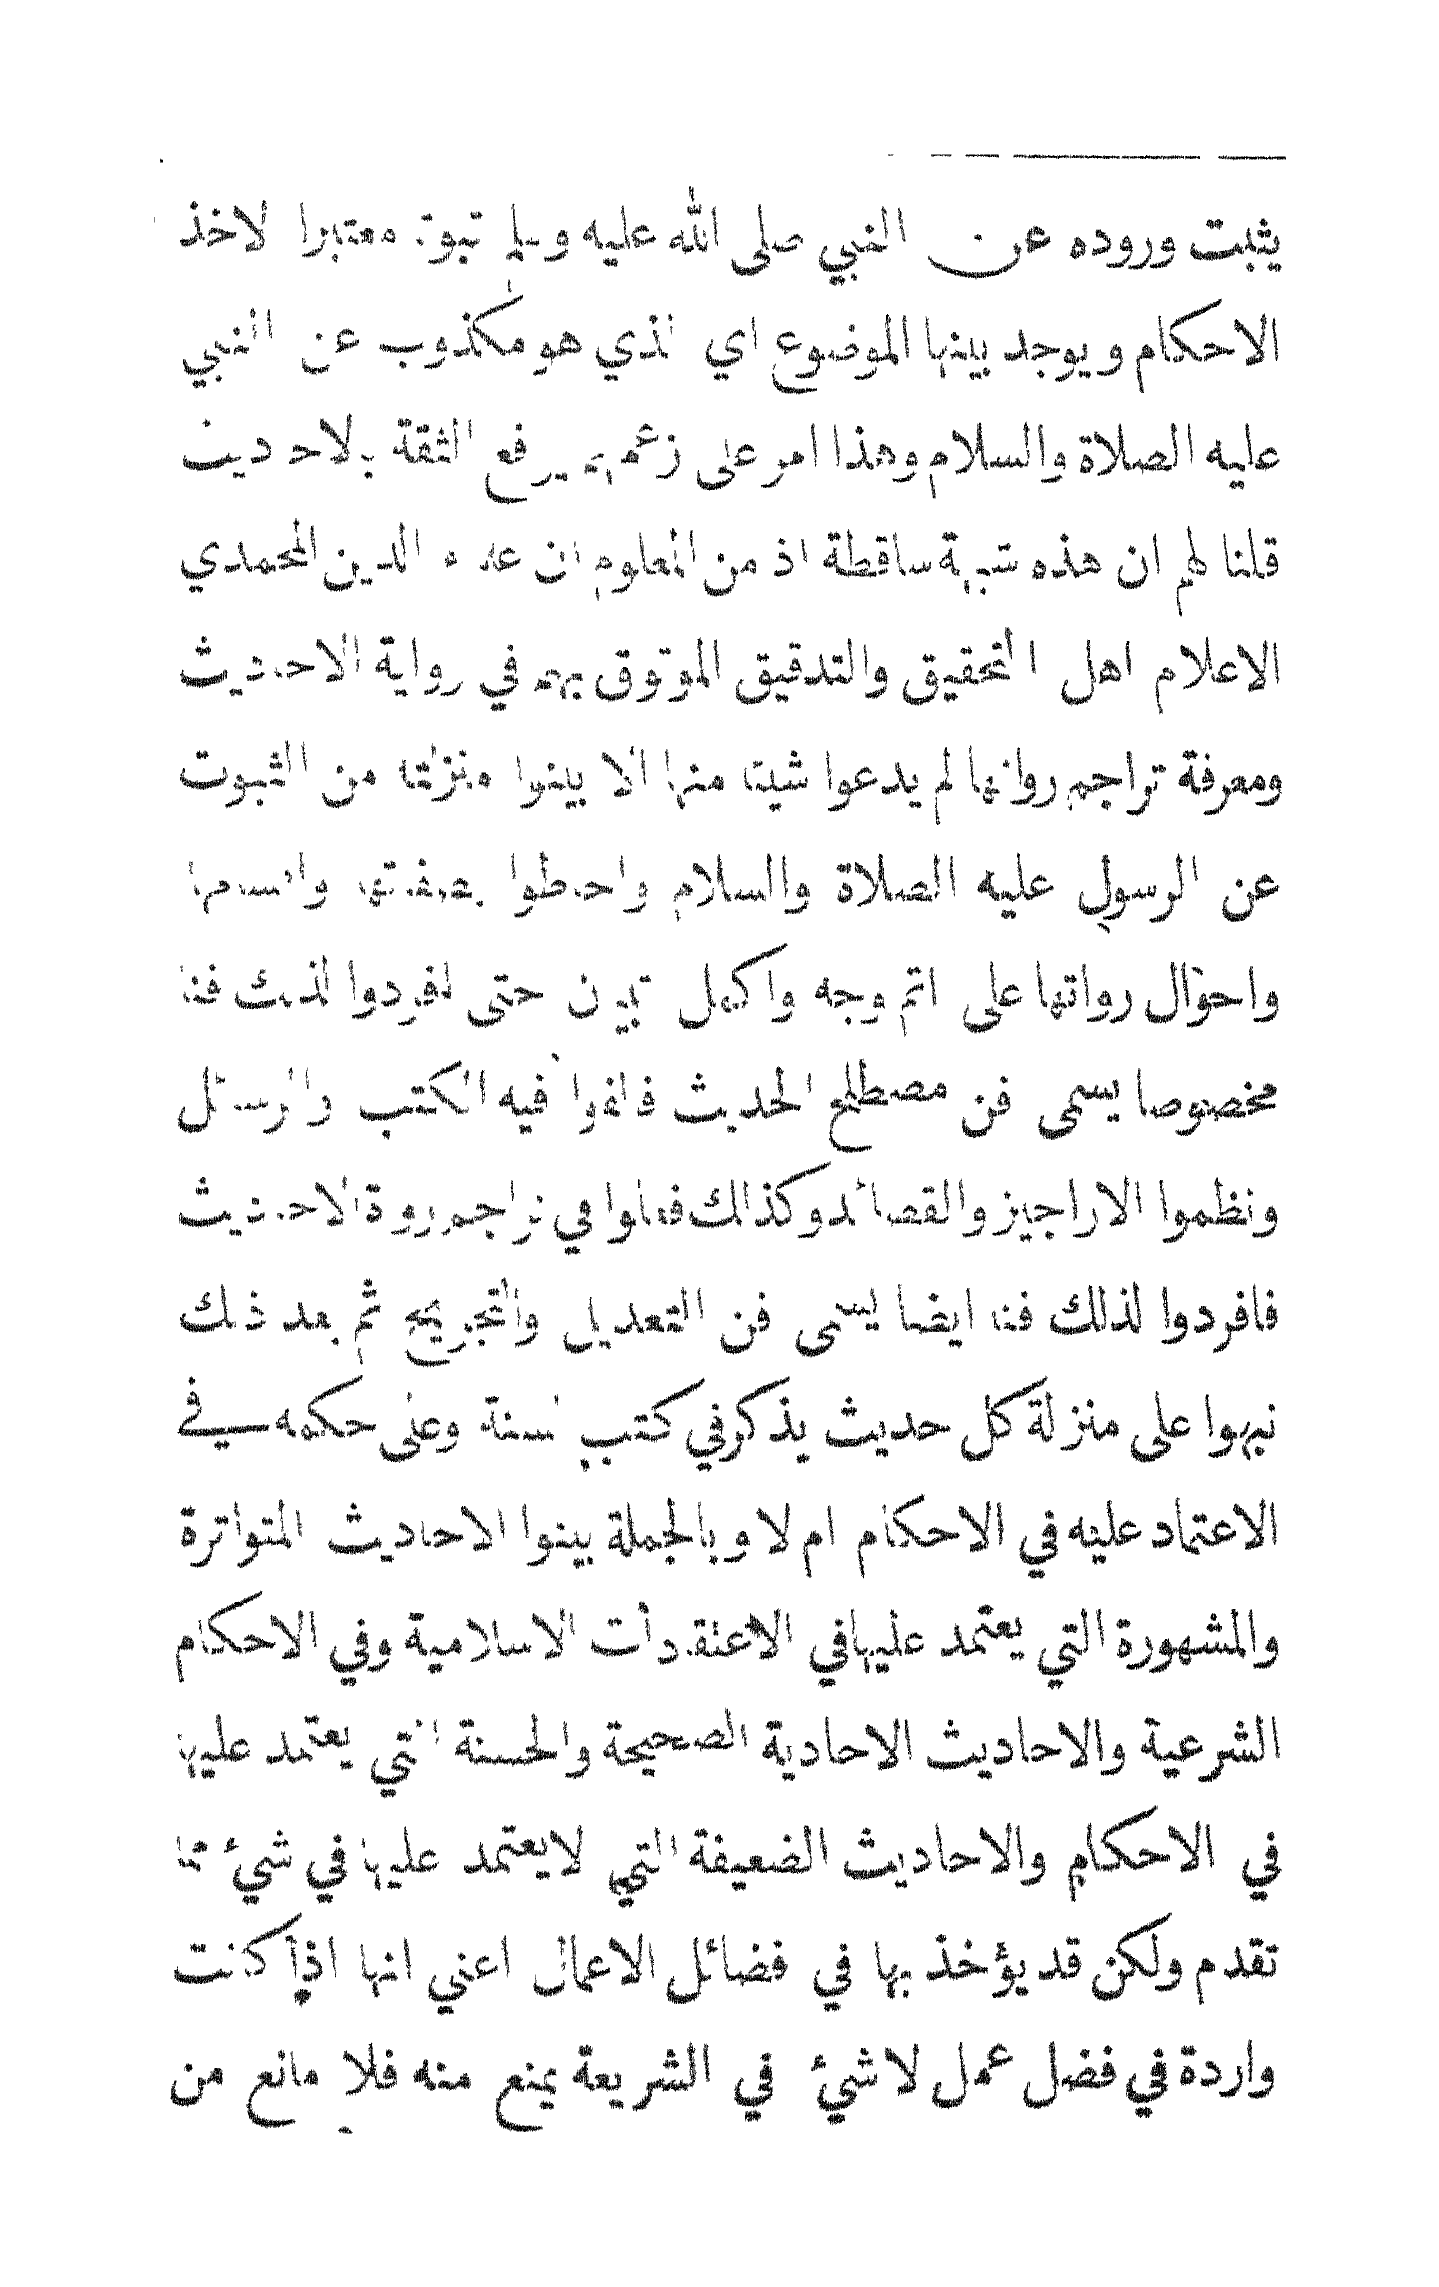 يثبت وروده عن النبي صلى الله عليه وسلم ثبوتا معتبرا لاخذ
الاحكام ويوجد بينها الموضوع اي الذي هو مكذوب عن النبي
عليه الصلاة والسلام وهذا امر على زعمهم يرفع الثقة بالاحاديث
قلنا لهم ان هذه شبهة ساقطة اذ من المعلوم ان علماء الدين المحمدي
الاعلام اهل التحقيق والتدقيق الموثوق بهم في رواية الاحاديث
ومعرفة تراجم رواتها لم يدعوا شيئا منها الا بينوا منزلتها من الثبوت
عن الرسول عليه الصلاة والسلام واحاطوا بصفاتها واقسامها
واحوال رواتها على اتم وجه واكمل تبيان حتى افردوا لذلك فنا
مخصوصا يسمى فن مصطلح الحديث فالفوا فيه الكتب والرسائل
ونظموا الاراجيز والقصائد وكذالك فعلوا في تراجم رواة الاحاديث
فافردوا لذلك فنا ايضا يسمى فن التعديل والتجريح ثم بعد ذلك
نبهوا على منزلة كل حديث يذكر في كتب السنة وعلى حكمه في
الاعتماد عليه في الاحكام ام لا وبالجملة بينوا الاحاديث المتواترة
والمشهورة التي يعتمد عليها في الاعتقادات الاسلامية وفي الاحكام
الشرعية والاحاديث الاحادية الصحيحة والحسنة التي يعتمد عليها
في الاحكام والاحاديث الضعيفة التي لا يعتمد عليها في شيء مما
تقدم ولكن قد يؤخذ بها في فضائل الاعمال اعني انها اذا كانت
واردة في فضل عمل لا شيء في الشريعة يمنع منه فلا مانع من